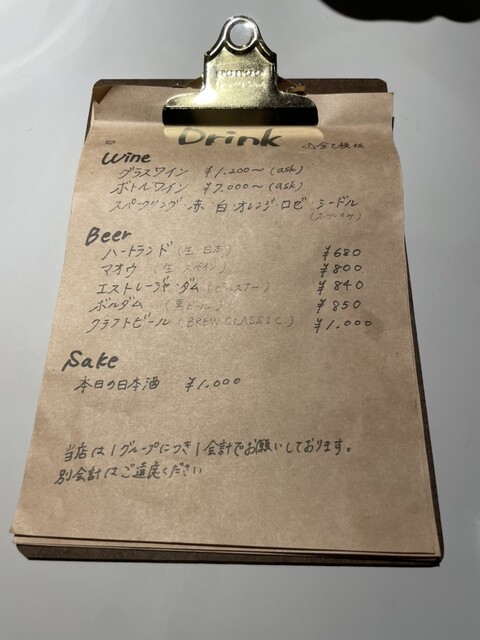 Drink
Wine
グラスワイン ¥1,200〜(ask)
ボトルワイン ¥7,000〜(ask)
スパークリング・赤・白・オレンジ・ロゼ・シードル
Beer
ハートランド(生 日本) ¥680
マオウ(生 スペイン) ¥800
エストレージャ・ダム(ピルスナー) ¥840
ボルダム(黒ビール) ¥850
クラフトビール(BREW CLASSIC) ¥1,000
Sake
本日の日本酒 ¥1,000
当店は1グループにつき1会計でお願いしております。
別会計はご遠慮ください